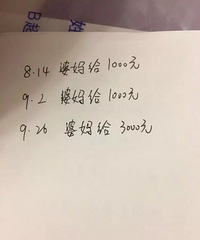 8.14 婆妈给 1000元
9.2 婆妈给 1000元
9.26 婆妈给 3000元